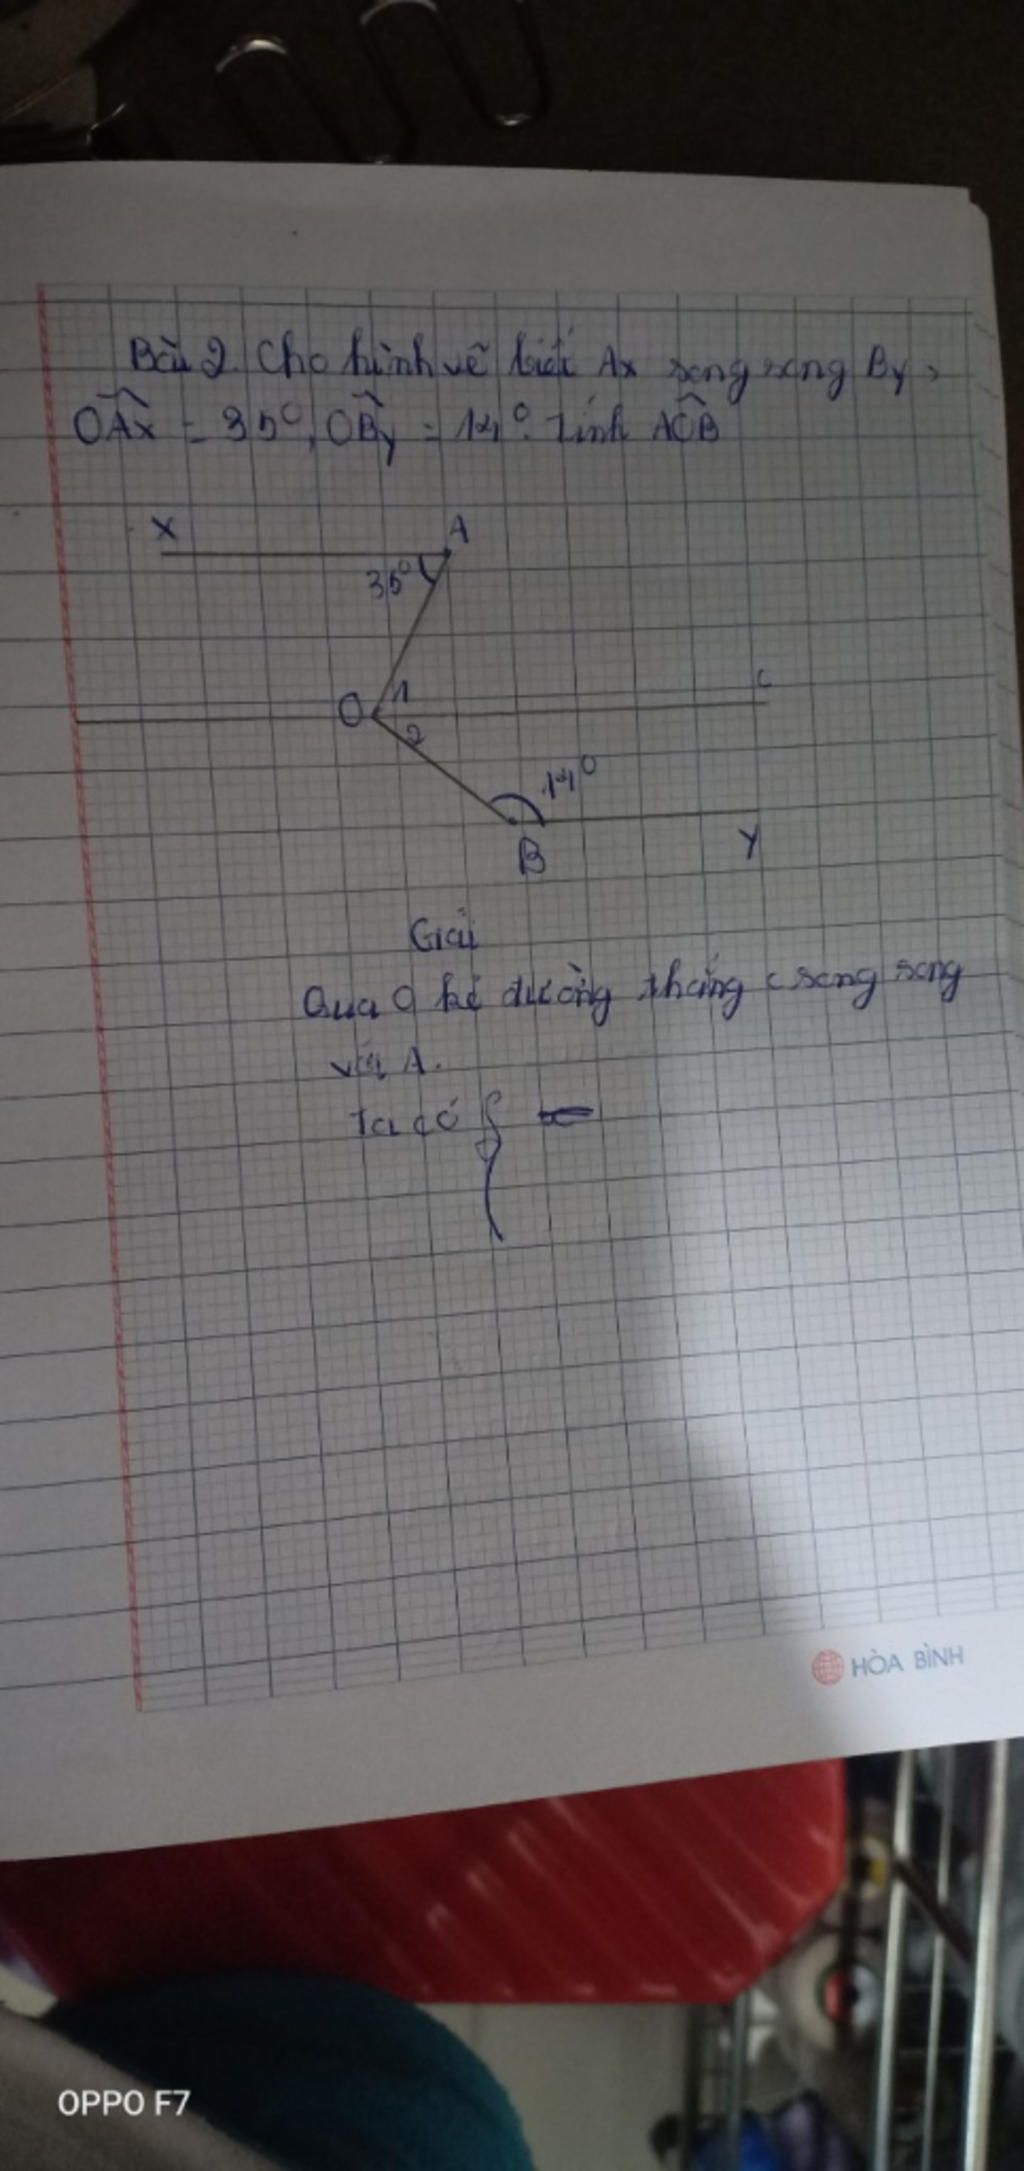 Bài 2. Cho hình vẽ biết Ax song song By,
OAx = 35°, OBy = 14°. Tính AOB
x A
35°
O 1 c
2
14°
B y
Giải
Qua O kẻ đường thẳng c song song
với A.
Ta có {
HÒA BÌNH
OPPO F7